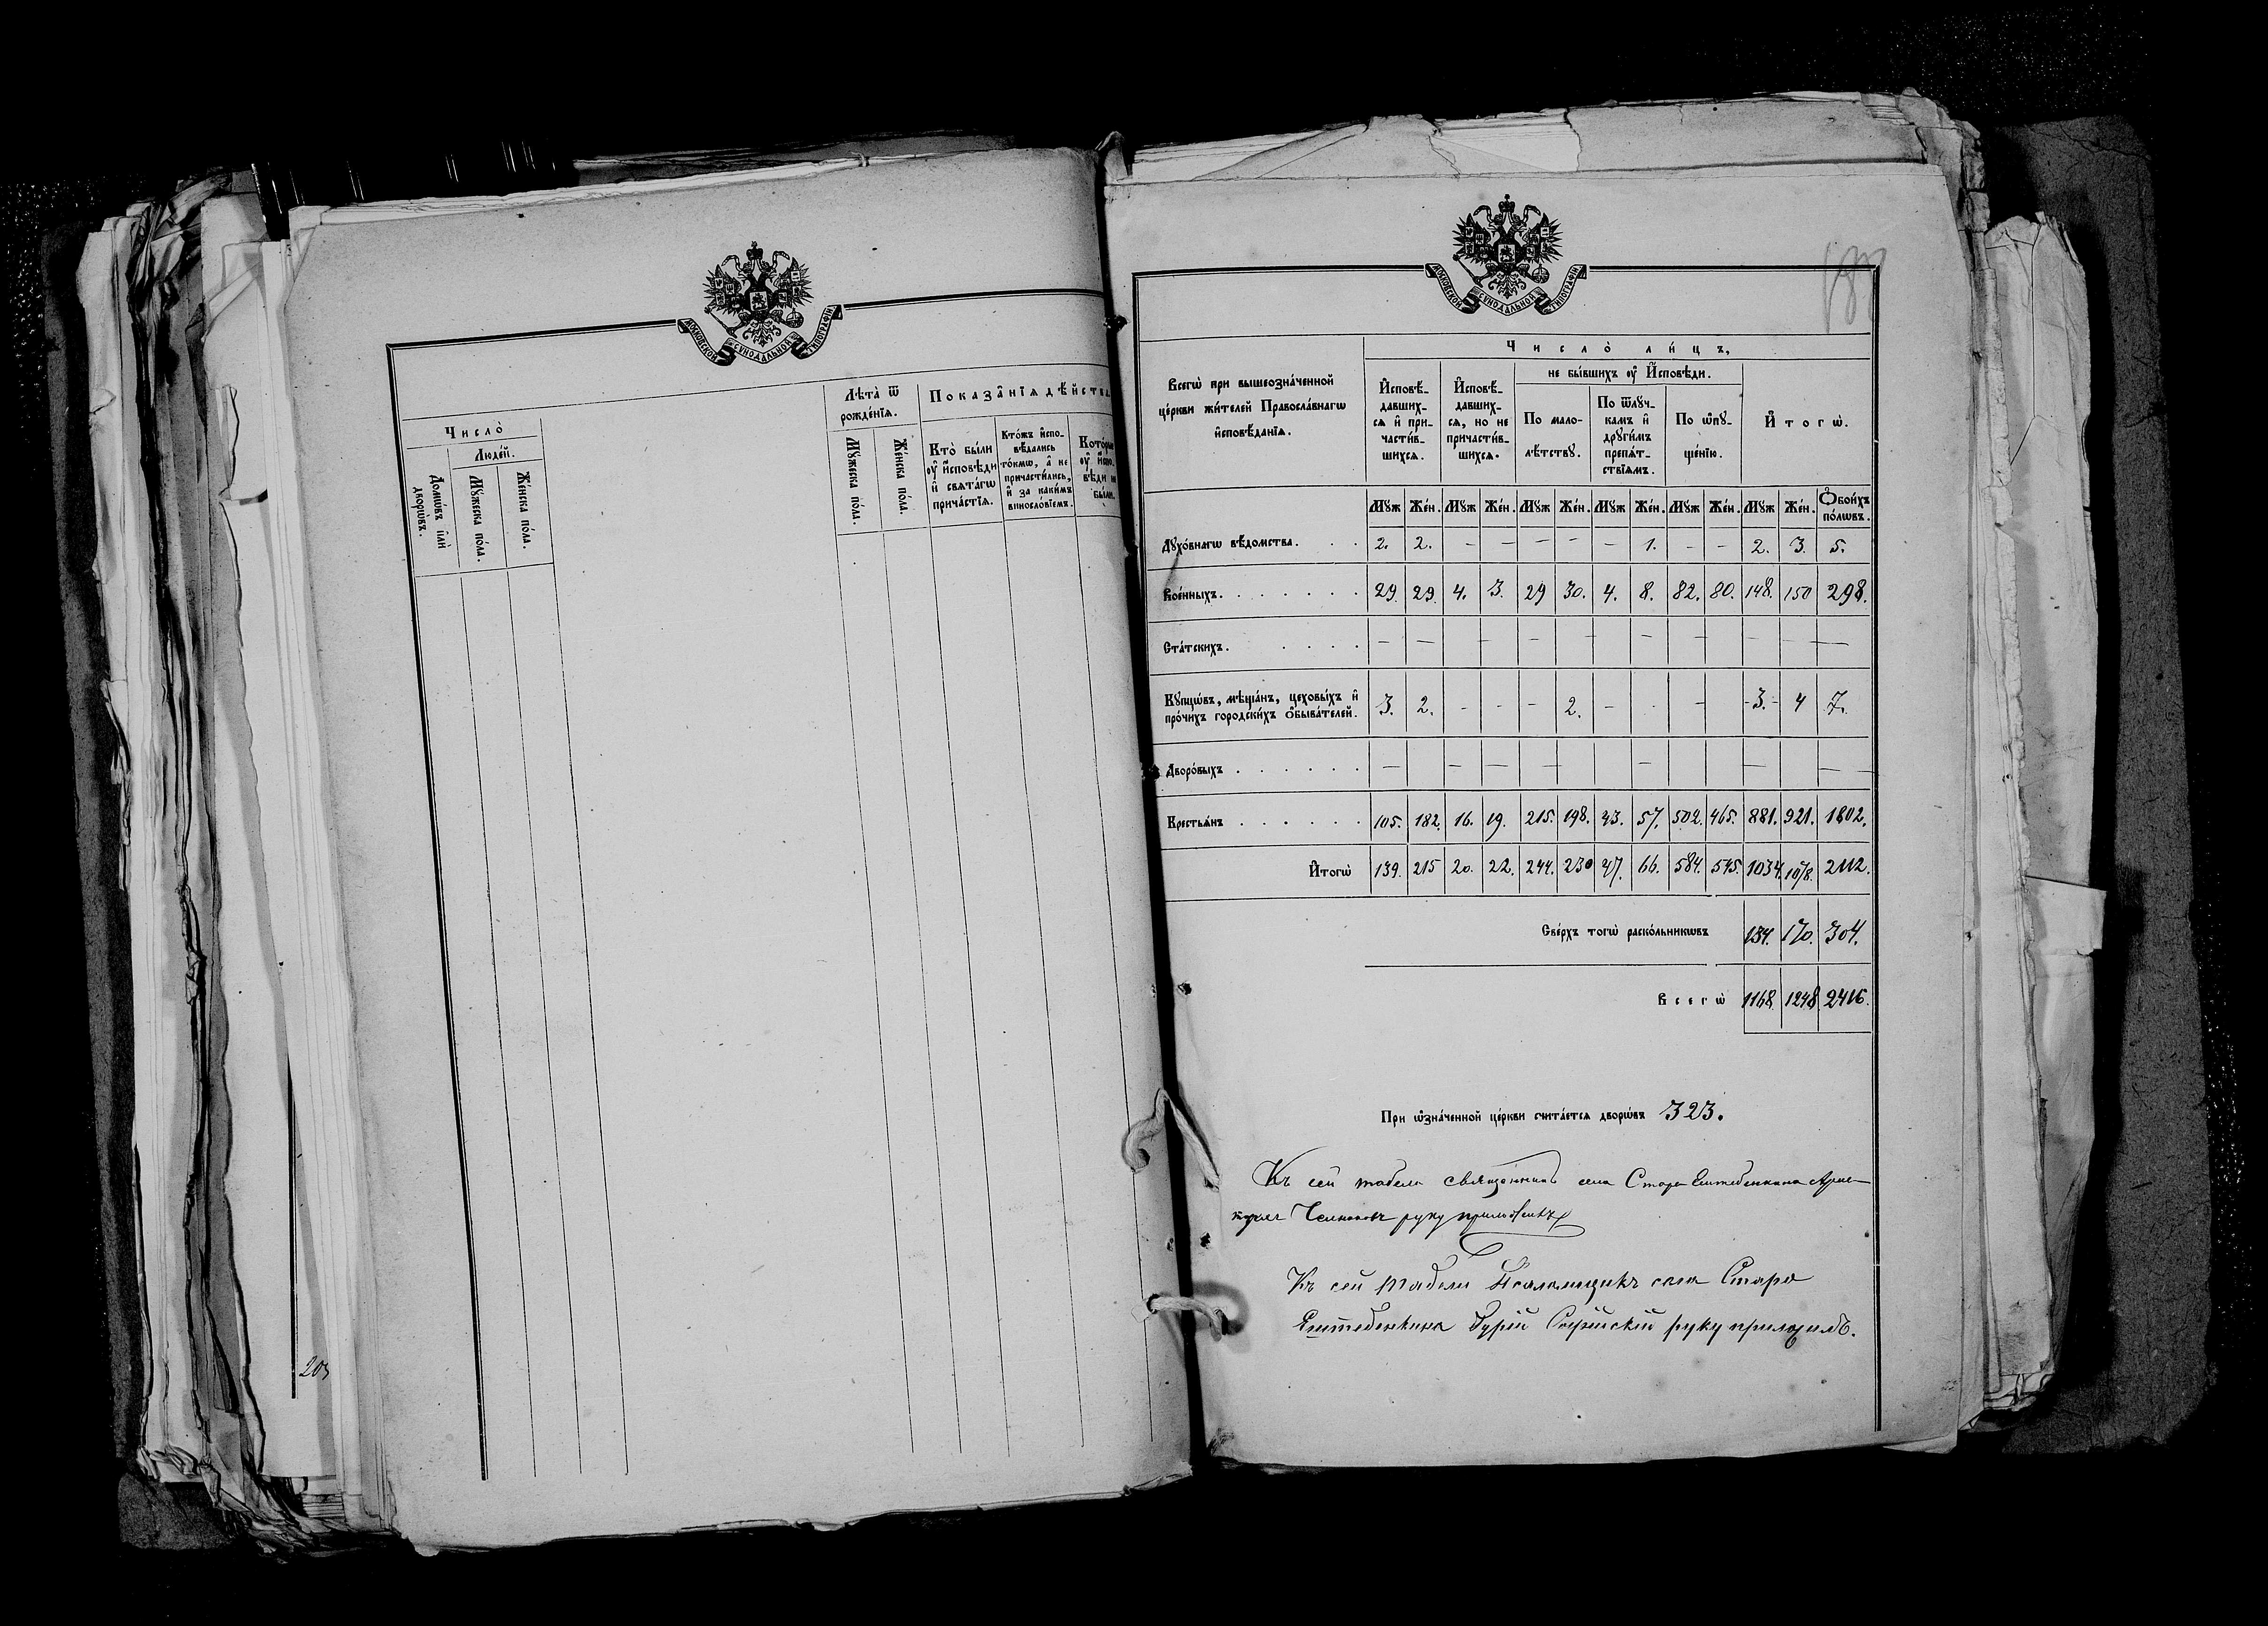 МОСКОВСКОЙ СѴНОДАЛЬНОЙ ТИПОГРАФІИ
Число̀
Людѐй.
Домѡ́въ и҆лѝ дворѡ́въ.
Мꙋ́жеска по́ла.
Же́нска по́ла.
Лѣ́та ѿ рожде́нїѧ.
Мꙋ́жеска по́ла.
Же́нска по́ла.
Показа̑нїѧ дѣ́йства
Кто̀ бы́ли ᲂу҆ И҆сповѣди и҆ свѧта́гѡ прича́стїѧ.
Кто́жъ и҆сповѣдались то́кмѡ, а҆ не причасти́лись, и҆ за каки́мъ винословїемъ.
ᲂу҆ бы́ли.
203
МОСКОВСКОЙ СѴНОДАЛЬНОЙ ТИПОГРАФІИ
Всегѡ̀ при вышеозна́ченной це́ркви жи́телей Правосла́внагѡ и҆сповѣданїѧ.
Число̀ ли́цъ,
И҆сповѣдавшихсѧ и҆ причасти́вшихсѧ.
И҆сповѣдавшихсѧ, но не причасти́вшихсѧ.
не бы́вшихъ ᲂу҆ И҆сповѣди.
По мало-лѣтствꙋ.
По ѿлꙋч-камъ и҆ дрꙋги́мъ препѧ́т-ствїѧмъ.
По ѡ҆пꙋ-ще́нїю.
И҆тогѡ̀.
Мꙋж Же́н. Мꙋж Же́н. Мꙋж Же́н. Мꙋж Же́н. Мꙋж Же́н. Мꙋж Же́н. Ѻ҆бои́хъ по́лѡвъ.
Дꙋхо́внагѡ вѣ́домства. 2. 2. – – – – – 1. – – 2. 3. 5.
Вое́нныхъ. 29. 29. 4. 3. 29 30. 4. 8. 82. 80. 148. 150 298.
Ста́тскихъ. – – – – – – – – – –
Кꙋпцѡ́въ, мѣща́нъ, цеховы́хъ и҆ про́чихъ городски́хъ ѻ҆быва́телей. 3. 2. – – – 2. – – – 3. 4 7.
Дворо́выхъ – – – – – – –
Крестьѧ́нъ 105. 182. 16. 19. 215. 198. 43. 57. 502. 465. 881. 921. 1802.
И҆тогѡ̀ 139. 215 20. 22. 244. 230 47. 66. 584. 545. 1034. 1078. 2112.
Све́рхъ тогѡ̀ раско́льникѡвъ 134. 170. 304.
Всегѡ̀ 1168 1248 2416.
При ѡ҆зна́ченной це́ркви счита́етсѧ дворѡ́въ 323.
Къ сей табели священникъ села Старо Ештебенькина
руку приложилъ
Къ сей табели Псаломщикъ села Старо
Ештебенькина Гурій руку приложилъ.